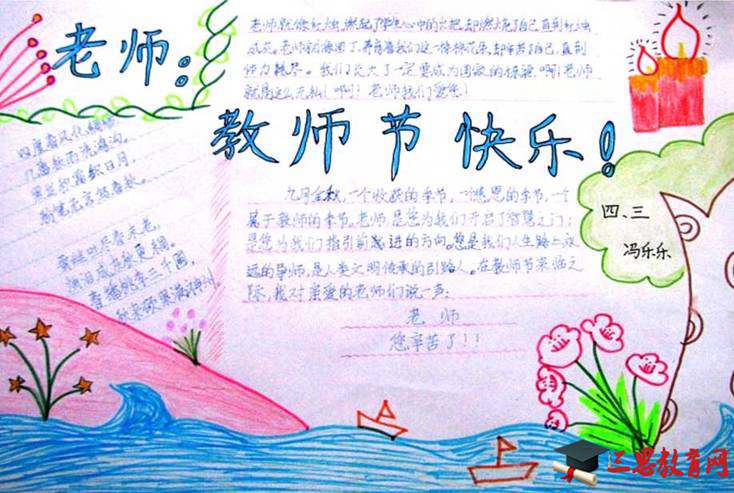 老师：
老师就像红烛,燃起了学生心中的火把,却燃烧了自己,直到红烛
成灰。老师就像园丁,养育着我们这一棵棵花朵,却辛苦了自己,直到
我们长大了一定要成为国家的栋梁。啊!老师
就是这么无私!啊!老师我们爱您!
教师节快乐!
四度春风化绸缪
几番秋雨洗鸿沟。
黑发积霜织日月
粉笔无言写春秋。
蚕丝吐尽春未老,
烛泪成灰秋更稠。
春播桃李三千圃,
秋来硕果满神州。
九月金秋,一个收获的季节,一个感恩的季节,一个
属于教师的季节。老师,是您为我们开启了智慧之门;
是您为我们指引前进的方向。您是我们人生路上永
远的导师,是人类文明传承的引路人。在教师节来临之
际,我对亲爱的老师们说一声:
老师
您辛苦了!!
四、三
冯乐乐
三思教育网